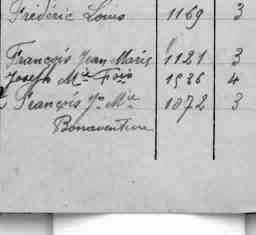 Frédéric Louis 1169 3
François Jean Marie 1121 3
Joseph Mie Fois 1536 4
François Jn Mie 1072 3
Bonaventure